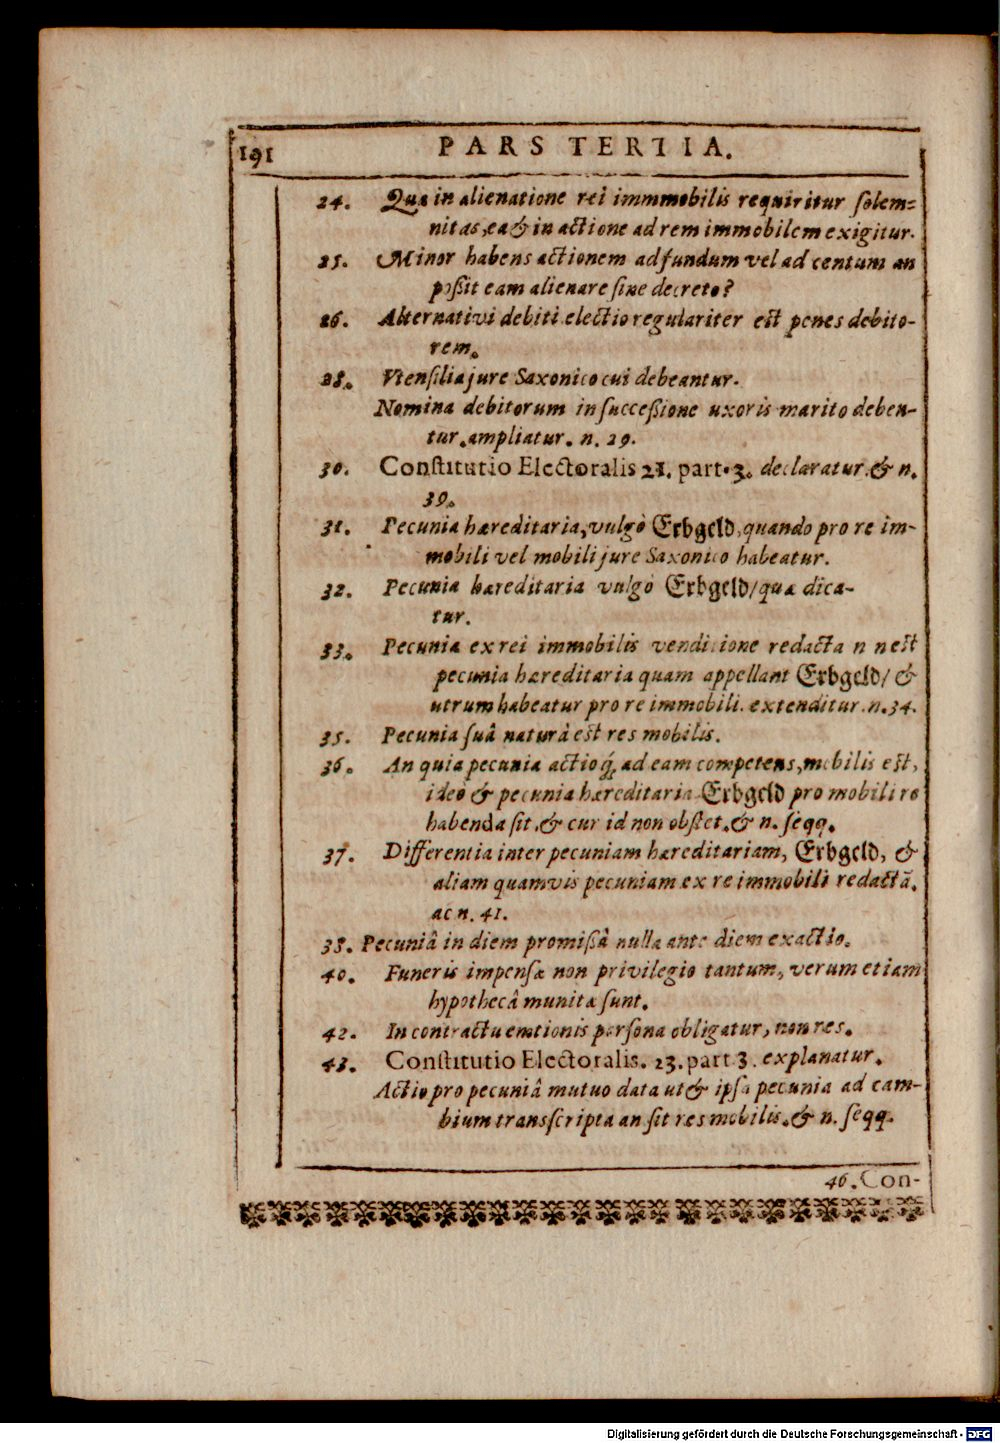 191
PARS TERTIA.
24. Quæ in alienatione rei immmobilis requiritur ſolem=
nitas, ea & in actione ad rem immobilem exigitur.
25. Minor habens actionem ad fundum vel ad centum an
poßit eam alienare ſine decreto?
26. Alternativi debiti electio regulariter est penes debito-
rem.
28. Vtenſilia jure Saxonico cui debeantur.
Nomina debitorum in ſucceßione uxoris marito deben-
tur. ampliatur. n. 29.
30. Conſtitutio Electoralis 21. part. 3. declaratur. & n.
39.
31. Pecunia hæreditaria, vulgò Erbgeld, quando pro re im-
mobili vel mobili jure Saxonico habeatur.
32. Pecunia hæreditaria vulgò Erbgeld/ quæ dica-
tur.
33. Pecunia ex rei immobilis venditione redacta n n est
pecunia hæreditaria quam appellant Erbgeld/ &
utrum habeatur pro re immobili. extenditur. n. 34.
35. Pecunia ſuâ naturâ est res mobilis.
36. An quia pecunia actioq́; ad eam competens, mobilis est,
ideò & pecunia hæreditaria Erbgeld pro mobili re
habenda ſit, & cur id non obſtet. & n. ſeqq.
37. Differentia inter pecuniam hæreditariam, Erbgeld, &
aliam quamvis pecuniam ex re immobili redactã.
ac n. 41.
38. Pecuniâ in diem promißâ nulla ante diem exactio.
40. Funeris impenſæ non privilegio tantum, verum etiam
hypothecâ munitæ ſunt.
42. In contractu emtionis perſona obligatur, non res.
43. Conſtitutio Electoralis. 23. part 3. explanatur.
Actio pro pecuniâ mutuo data ut & ipſa pecunia ad cam-
bium transſcripta an ſit res mobilis. & n. ſeqq.
46. Con-
Digitalisierung gefördert durch die Deutsche Forschungsgemeinschaft - DFG